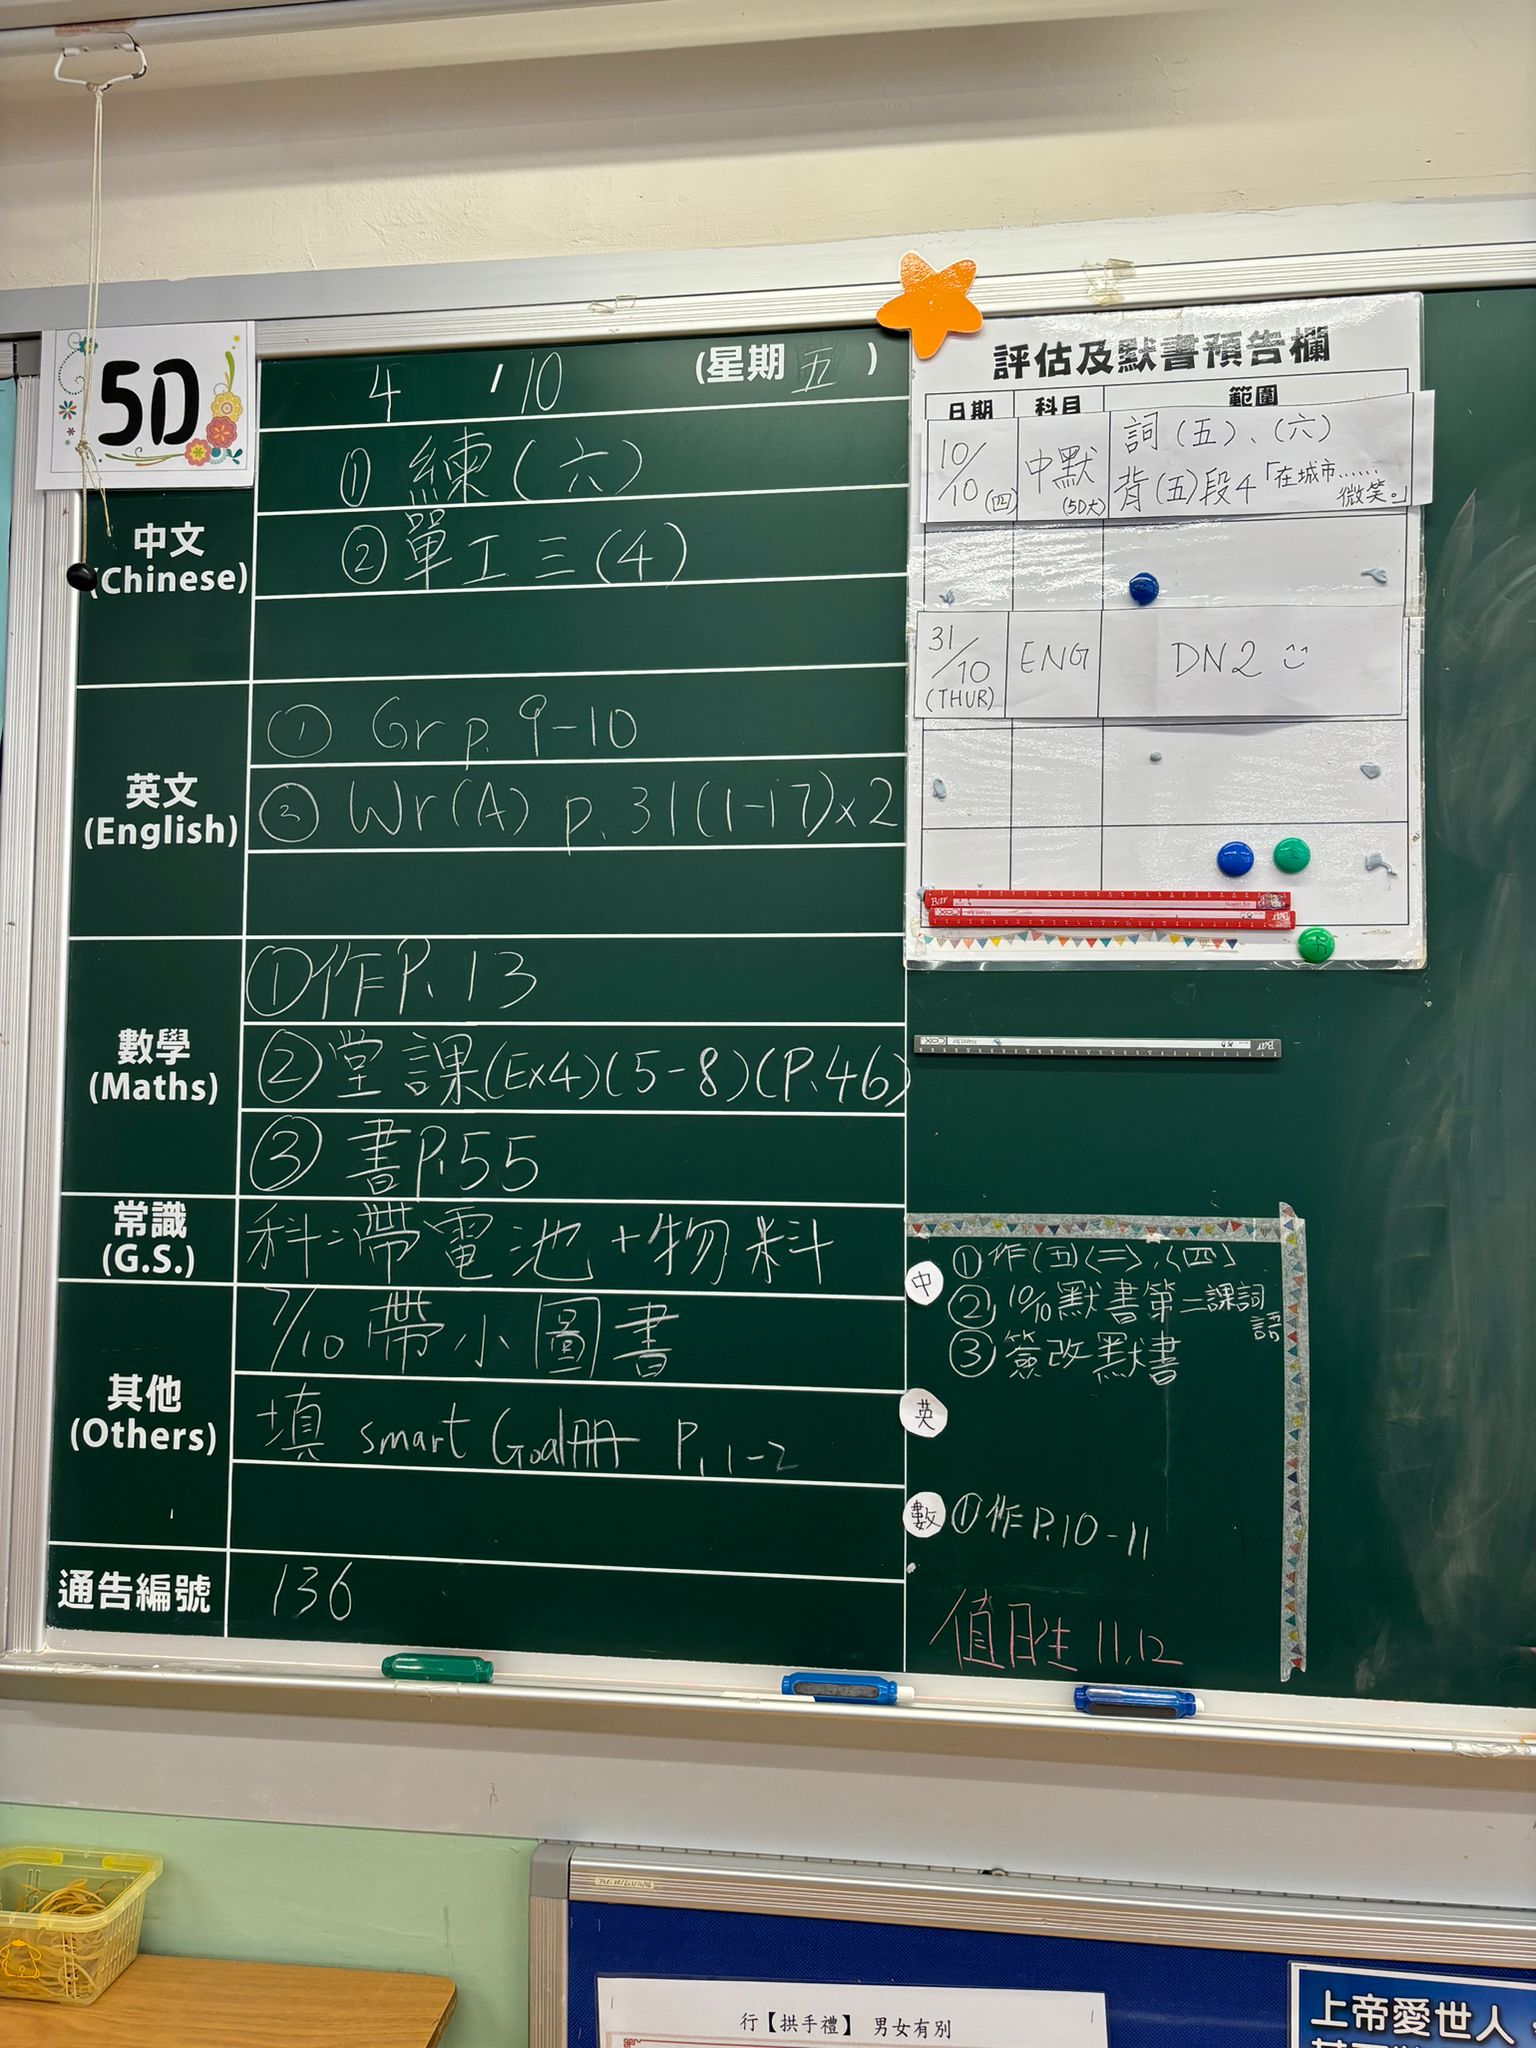 5D
4 / 10 (星期五)
中文
(Chinese)
① 練(六)
② 單工三(4)
英文
(English)
① Gr p. 9-10
② Wr(A) p. 31(1-17)x2
數學
(Maths)
①作P. 13
②堂課(Ex4)(5-8)(P.46)
③ 書P.55
常識
(G.S.)
科:帶電池+物料
其他
(Others)
7/10 帶小圖書
填 smart Goal冊 P.1-2
通告編號
136
評估及默書預告欄
日期 科目 範圍
10/10 (四) 中默 (5D大) 詞(五)、(六)
背(五)段4「在城市……
微笑。」
31/10 (THUR) ENG DN2
中
①作(五)(二)、(四)
②10/10默書第二課詞語
③簽改默書
英
數
①作P.10-11
值日生 11,12
行【拱手禮】 男女有別
上帝愛世人